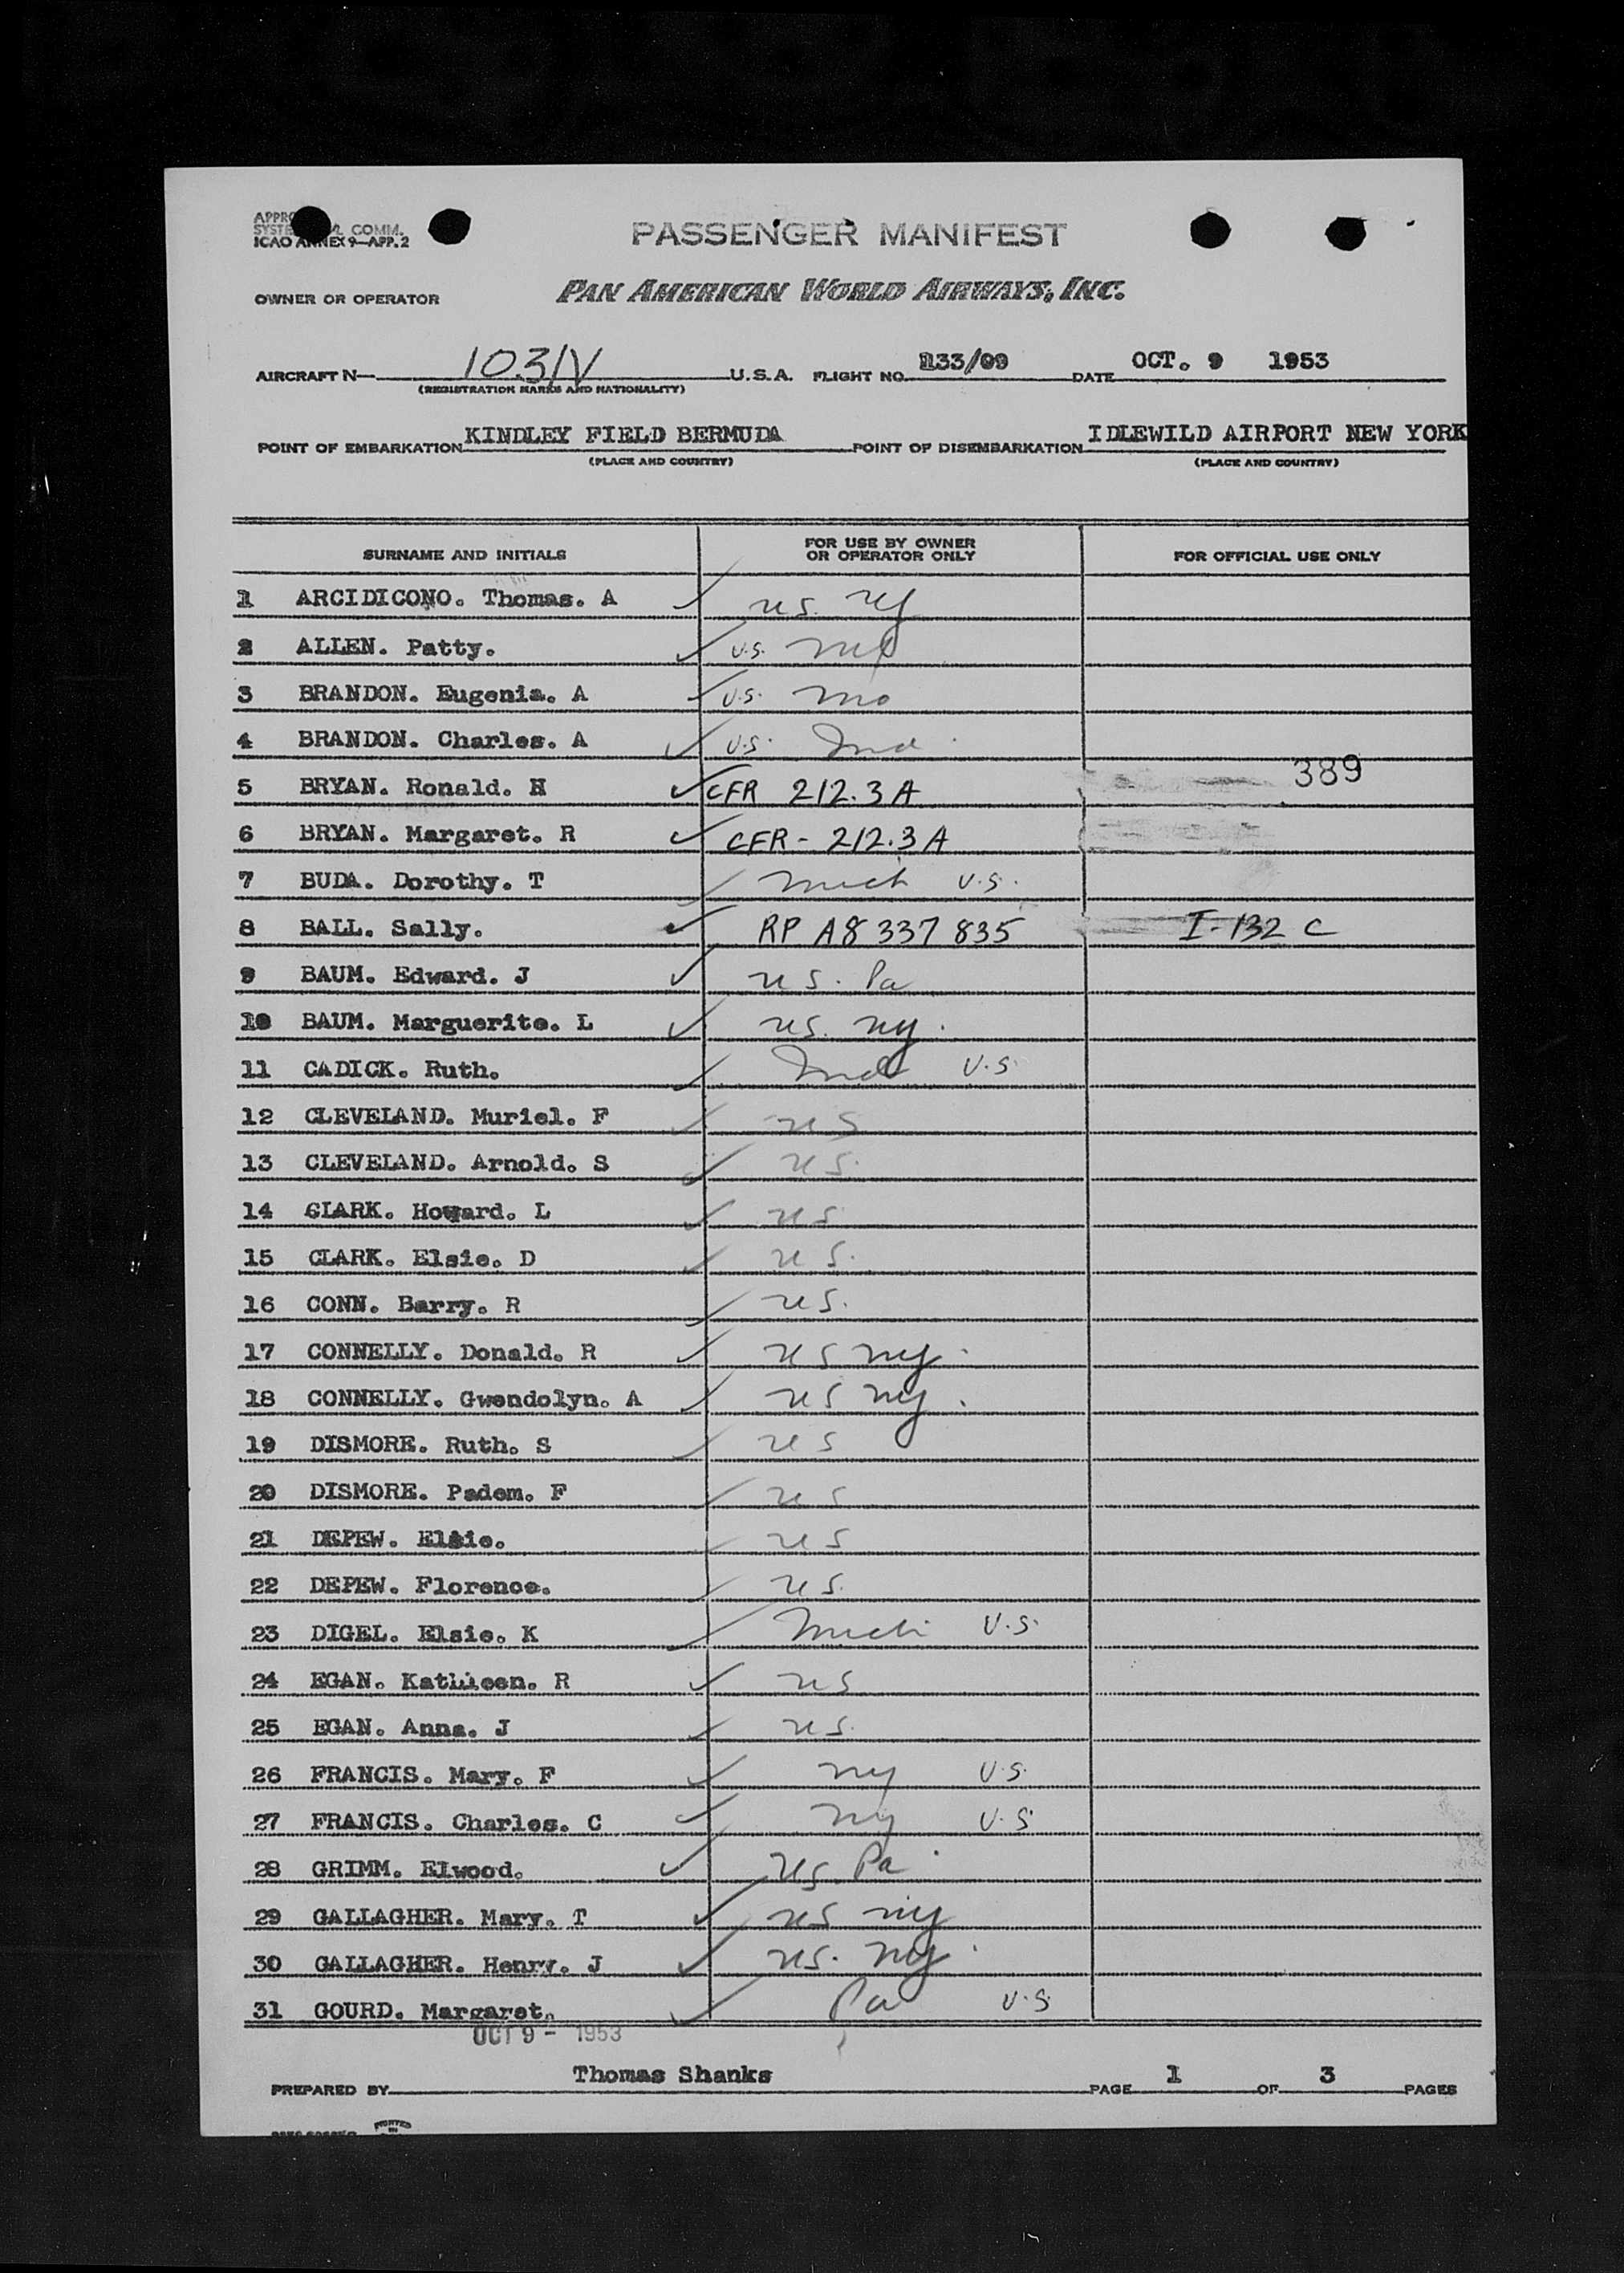 ICAO ANNEX 9—APP. 2
COMM.
PASSENGER MANIFEST
OWNER OR OPERATOR PAN AMERICAN WORLD AIRWAYS, INC.
AIRCRAFT N— 1031V U.S.A. FLIGHT NO. 133/09 DATE OCT. 9 1953
(REGISTRATION MARKS AND NATIONALITY)
POINT OF EMBARKATION KINDLEY FIELD BERMUDA POINT OF DISEMBARKATION IDLEWILD AIRPORT NEW YORK
(PLACE AND COUNTRY) (PLACE AND COUNTRY)
SURNAME AND INITIALS FOR USE BY OWNER OR OPERATOR ONLY FOR OFFICIAL USE ONLY
1 ARCIDICONO. Thomas. A us. ny
2 ALLEN. Patty. U.S.
3 BRANDON. Eugenia. A U.S. mo
4 BRANDON. Charles. A U.S. Ind.
5 BRYAN. Ronald. H CFR 212.3A 389
6 BRYAN. Margaret. R CFR - 212.3A
7 BUDA. Dorothy. T Mich U.S.
8 BALL. Sally. RP A8 337 835 I-132 C
9 BAUM. Edward. J us. Pa
10 BAUM. Marguerite. L us. ny.
11 CADICK. Ruth. Ind U.S.
12 CLEVELAND. Muriel. F us
13 CLEVELAND. Arnold. S us.
14 CLARK. Howard. L us
15 CLARK. Elsie. D us.
16 CONN. Barry. R us.
17 CONNELLY. Donald. R us ny.
18 CONNELLY. Gwendolyn. A us ny.
19 DISMORE. Ruth. S us
20 DISMORE. Padem. F us
21 DEPEW. Elsie. us
22 DEPEW. Florence. us.
23 DIGEL. Elsie. K Mich U.S.
24 EGAN. Kathleen. R us
25 EGAN. Anna. J us.
26 FRANCIS. Mary. F ny U.S.
27 FRANCIS. Charles. C ny U.S.
28 GRIMM. Elwood. us. Pa
29 GALLAGHER. Mary. T us ny
30 GALLAGHER. Henry. J us. ny.
31 GOURD. Margaret. Pa U.S.
OCT 9 - 1953
PREPARED BY Thomas Shanks PAGE 1 OF 3 PAGES
PRINTED IN